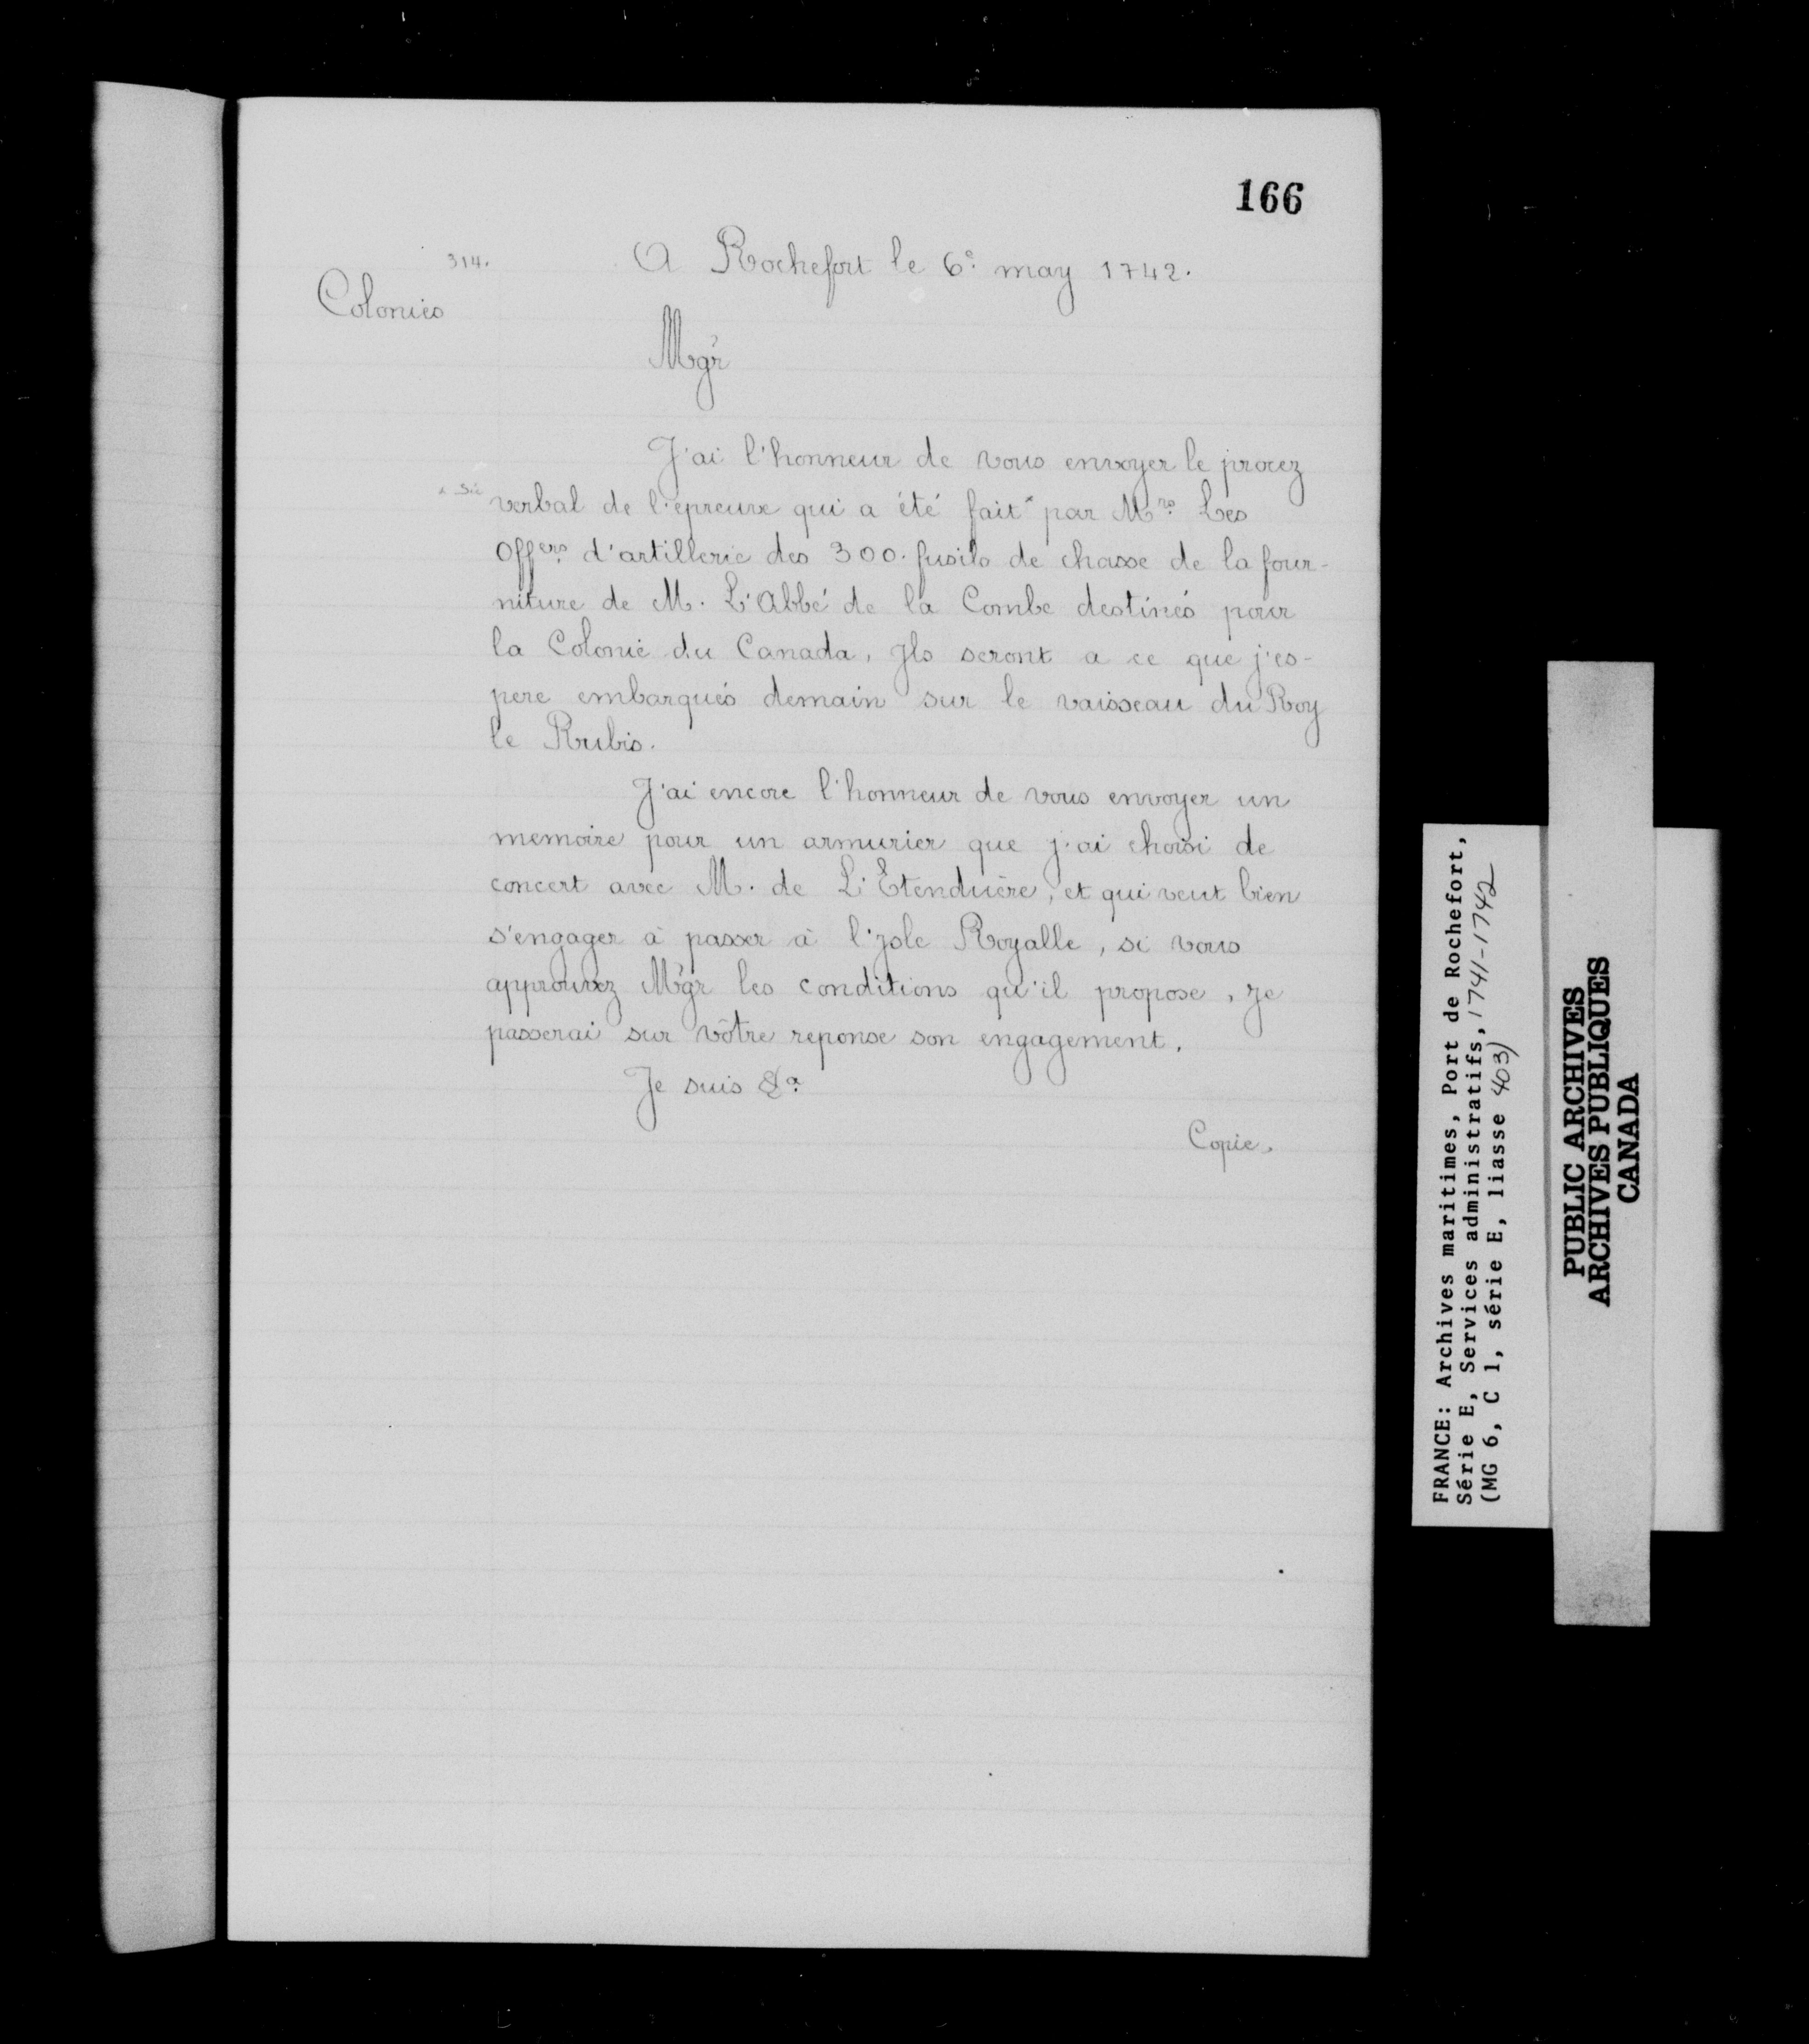 166
314.
A Rochefort le 6e. may 1742.
Colonies
Mgr
J'ai l'honneur de vous envoyer le procez
x Sic
verbal de l'épreuve qui a été fait x par Mrs. Les
Offers. d'artillerie des 300. fusils de chasse de la four-
niture de M. L'Abbé de la Combe destinés pour
la Colonie du Canada, Jls seront a ce que j'es-
pere embarqués demain sur le vaisseau du Roy
le Rubis.
J'ai encore l'honneur de vous envoyer un
memoire pour un armurier que j'ai choisi de
concert avec M. de L'Etenduère, et qui veut bien
s'engager à passer à l'jsle Royalle, si vous
approuvez Mgr les conditions qu'il propose, je
passerai sur vôtre reponse son engagement.
Je suis &a.
Copie.
FRANCE: Archives maritimes, Port de Rochefort,
Série E, Services administratifs, 1741-1742
(MG 6, C 1, série E, liasse 403)
PUBLIC ARCHIVES
ARCHIVES PUBLIQUES
CANADA